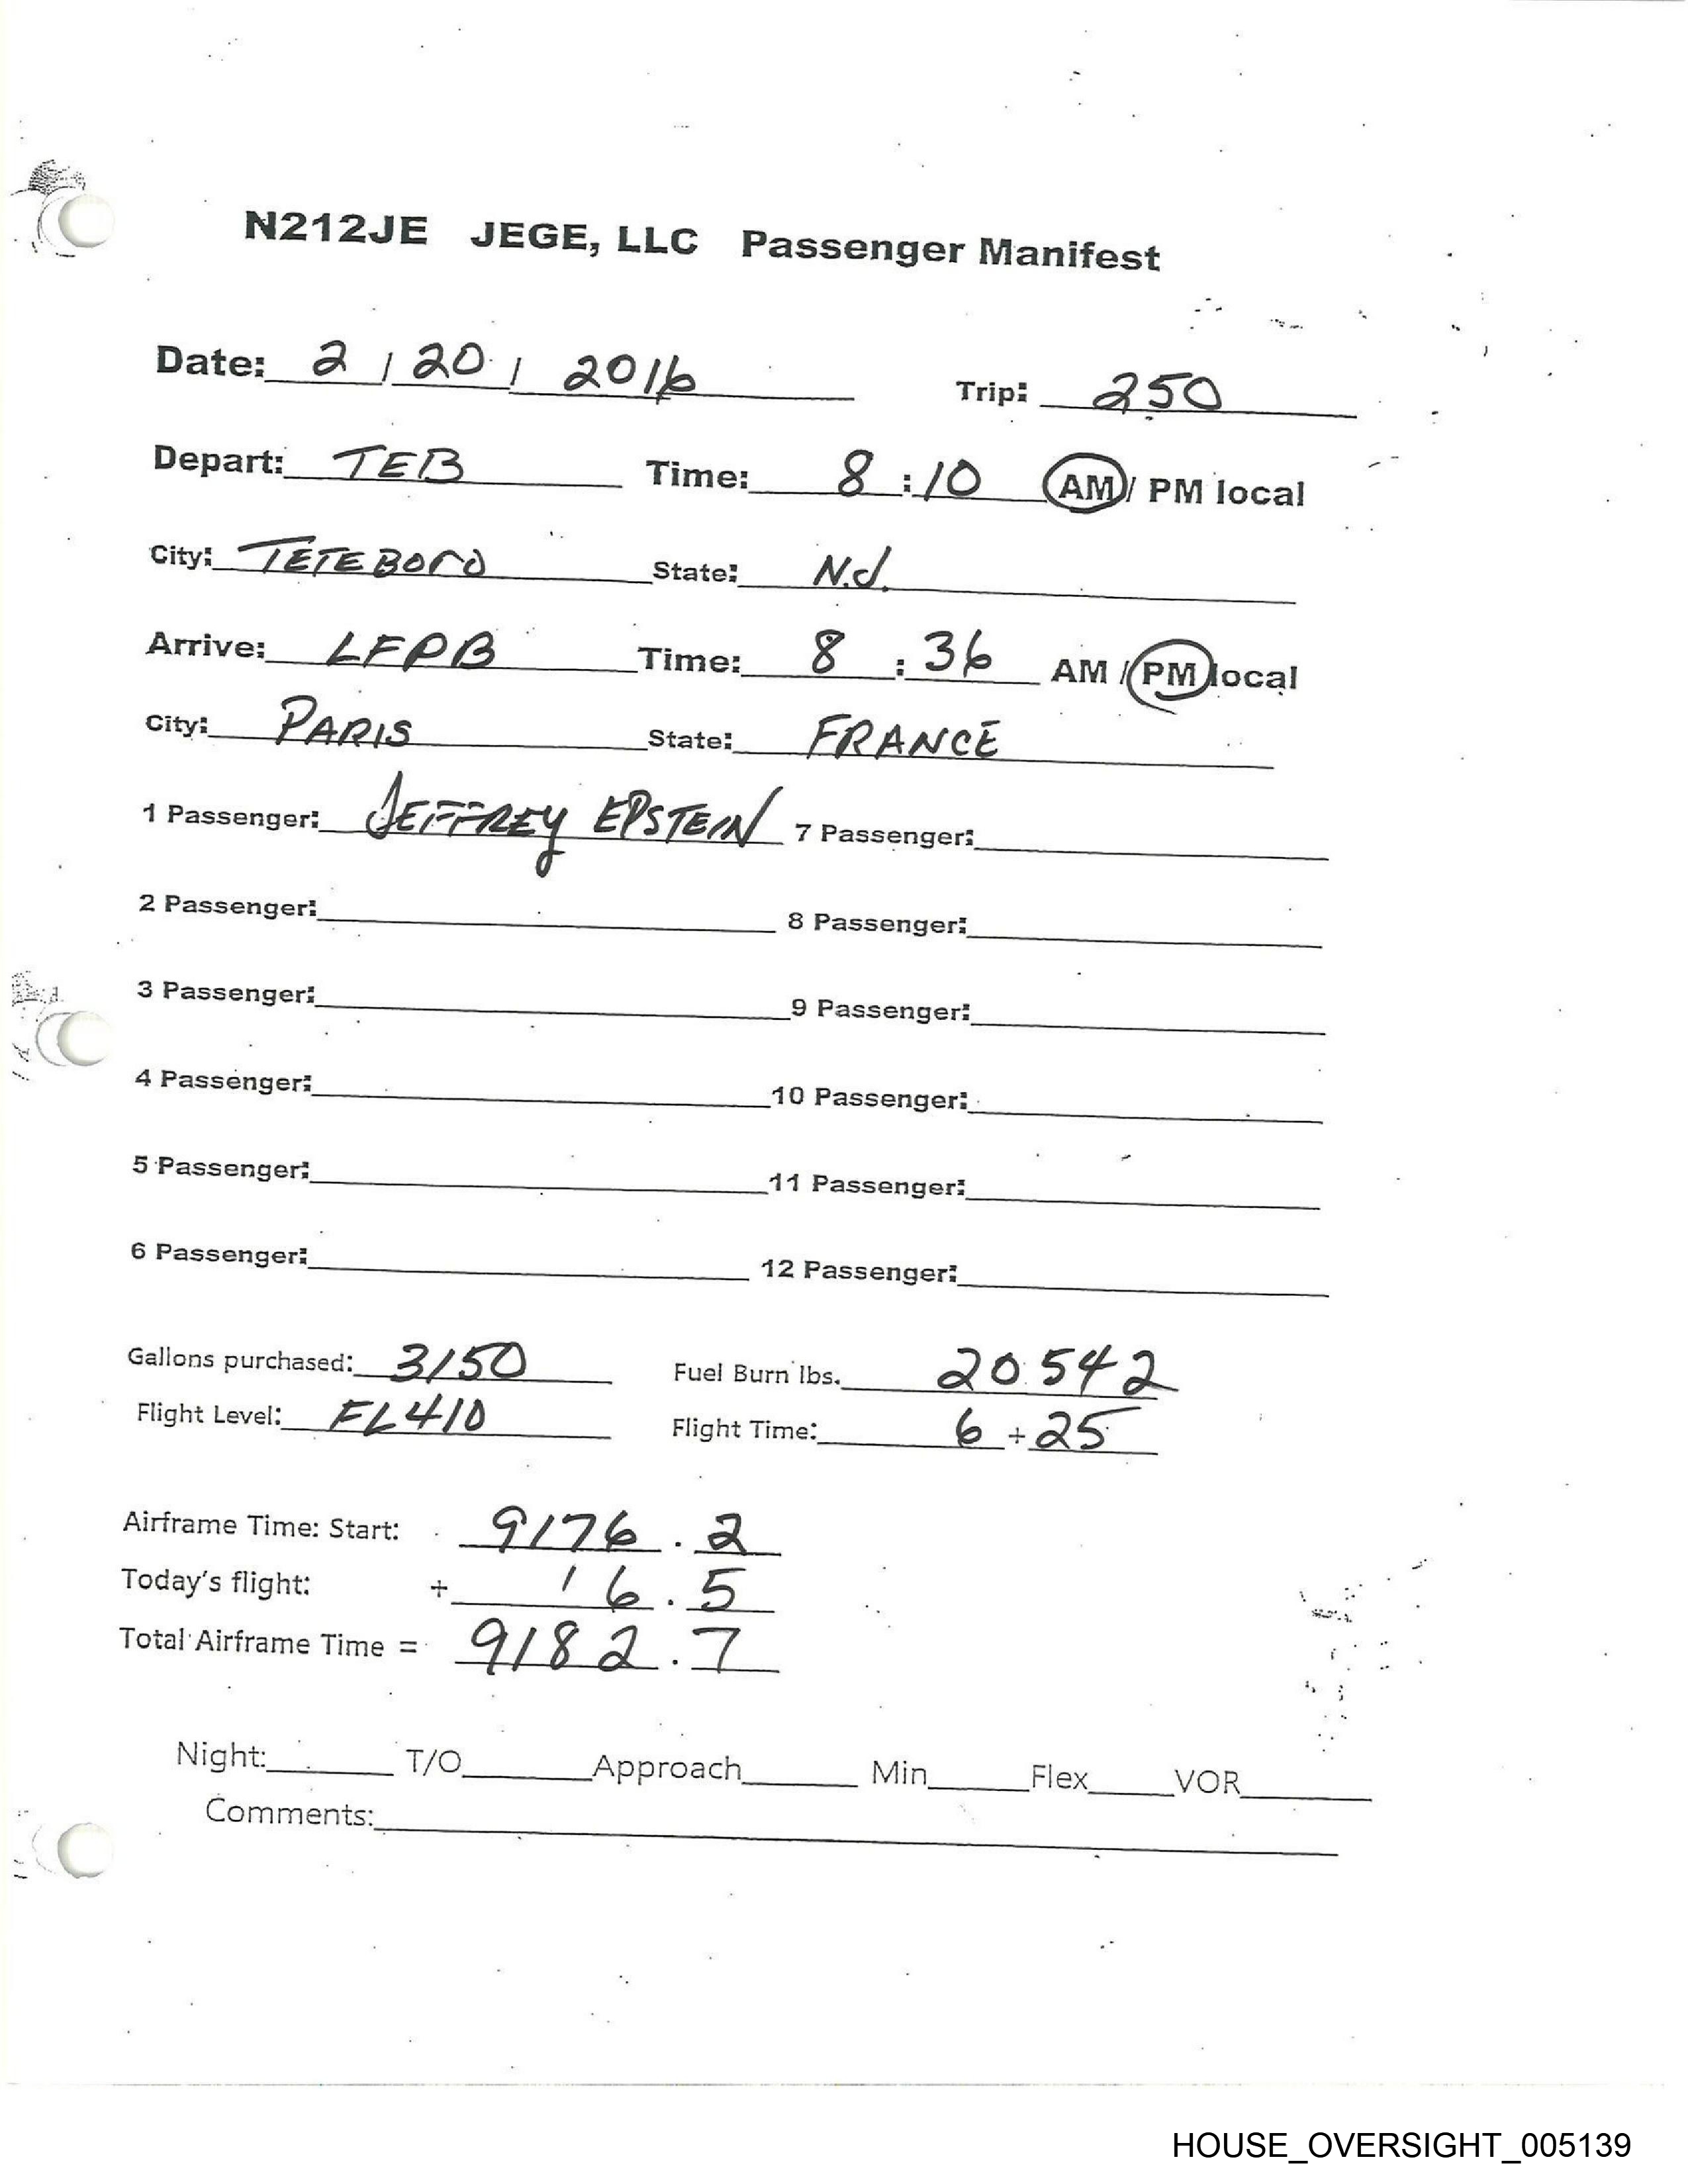 N212JE JEGE, LLC Passenger Manifest
Date: 2 / 20 / 2016 Trip: 250
Depart: TEB Time: 8 : 10 AM / PM local
City: TETEBORO State: N.J.
Arrive: LFPB Time: 8 : 36 AM / PM local
City: PARIS State: FRANCE
1 Passenger: JEFFREY EPSTEIN 7 Passenger:
2 Passenger: 8 Passenger:
3 Passenger: 9 Passenger:
4 Passenger: 10 Passenger:
5 Passenger: 11 Passenger:
6 Passenger: 12 Passenger:
Gallons purchased: 3150 Fuel Burn lbs. 20542
Flight Level: FL410 Flight Time: 6 + 25
Airframe Time: Start: 9176 . 2
Today's flight: + ' 6 . 5
Total Airframe Time = 9182 . 7
Night: T/O Approach Min Flex VOR
Comments:
HOUSE_OVERSIGHT_005139